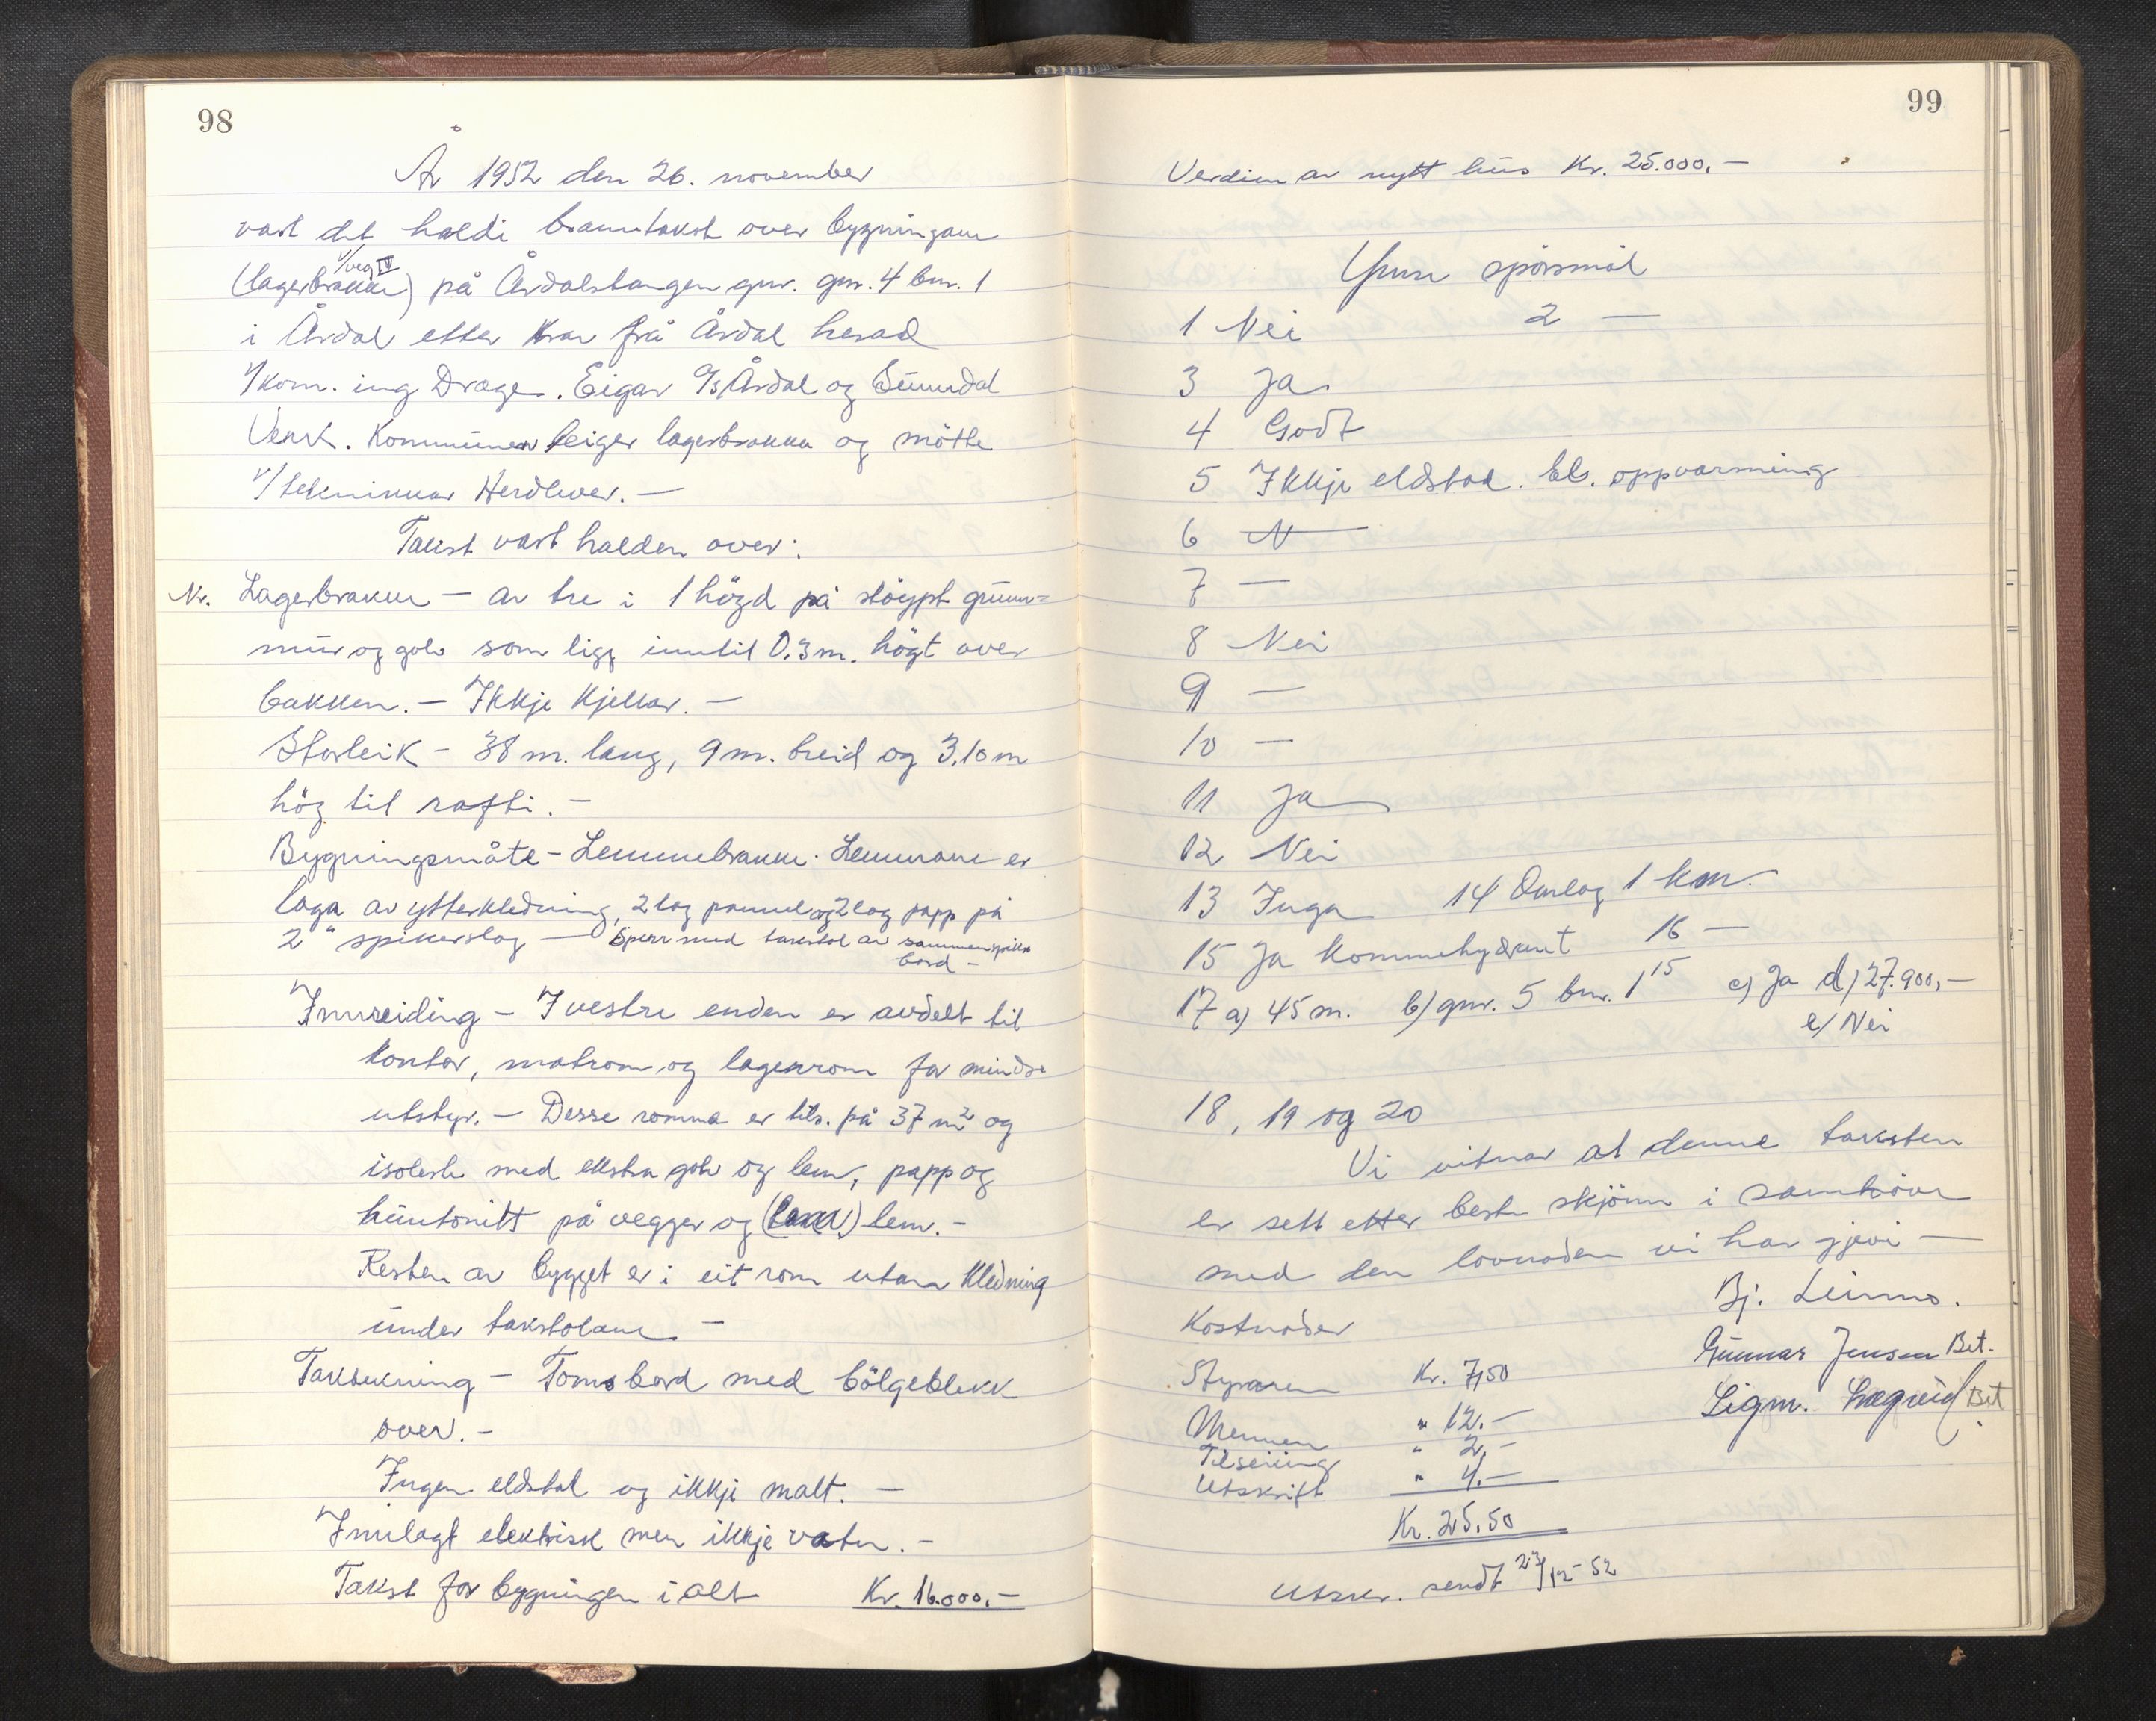 98
År 1952 den 26. november
vart det haldi branntakst over bygningane
v/veg IV
(lagerbrakke) på Årdalstangen gnr. gnr. 4 bnr. 1
i Årdal etter krav frå Årdal herad
v/kom. ing Drage. Eigar A/S Årdal og Sunndal
Verk. Kommunen leiger lagerbrakka og mötte
v/teknikkar Herdlever. —
Takst vart halden over:
Nr. Lagerbrakke — av tre i 1 högd på stöypt grunn=
mur og golv som ligg inntil 0.3 m. högt over
bakken. — Ikkje kjellar. —
Storleik — 38 m. lang, 9 m. breid og 3.10 m
hög til rafti. —
Bygningsmåte — Lemmebrakke. Lemmane er
laga av ytterkledning, 2 lag pannel og 2 lag papp på
2" spikerslag — Sperr med takstol av sammenspikra
bord —
Innreiding — I vestre enden er avdelt til
kontor, matrom og lagerrom for mindre
utstyr. — Desse romma er tils. på 37 m² og
isolerte med ekstra golv og lem, papp og
huntonitt på vegger og (lem) lem. —
Resten av bygget er i eit rom utan kledning
under takstolane —
Taktekning — Tomsbord med bölgeblekk
over. —
Ingen eldstad og ikkje malt. —
Innlagt elektrisk men ikkje vatn. —
Takst for bygningen i alt Kr. 16.000,—
99
Verdien av nytt hus Kr. 25.000,—
Ymse spörsmål
1 Nei 2 —
3 Ja
4 Godt
5 Ikkje eldstad. El. oppvarming
6 N
7 —
8 Nei
9 —
10 —
11 Ja
12 Nei
13 Inga 14 Omlag 1 km.
15 Ja kommehydrant 16 —
17 a) 45 m. b) gnr. 5 bnr. 1 15 c) Ja d) 27.900,—
e) Nei
18, 19 og 20
Vi vitnar at denne taksten
er sett etter beste skjönn i samhöve
med den lovnaden vi har gjevi —
Kostnader
Bj. Leirmo.
Gunnar Jensen Bet.
Styraren Kr. 7,50
Sigm. Lægreid Bet
Mennen " 12.—
Tilseiing " 2,—
Utskrift " 4.—
Kr. 25,50
Utskr. sendt 23/12-52